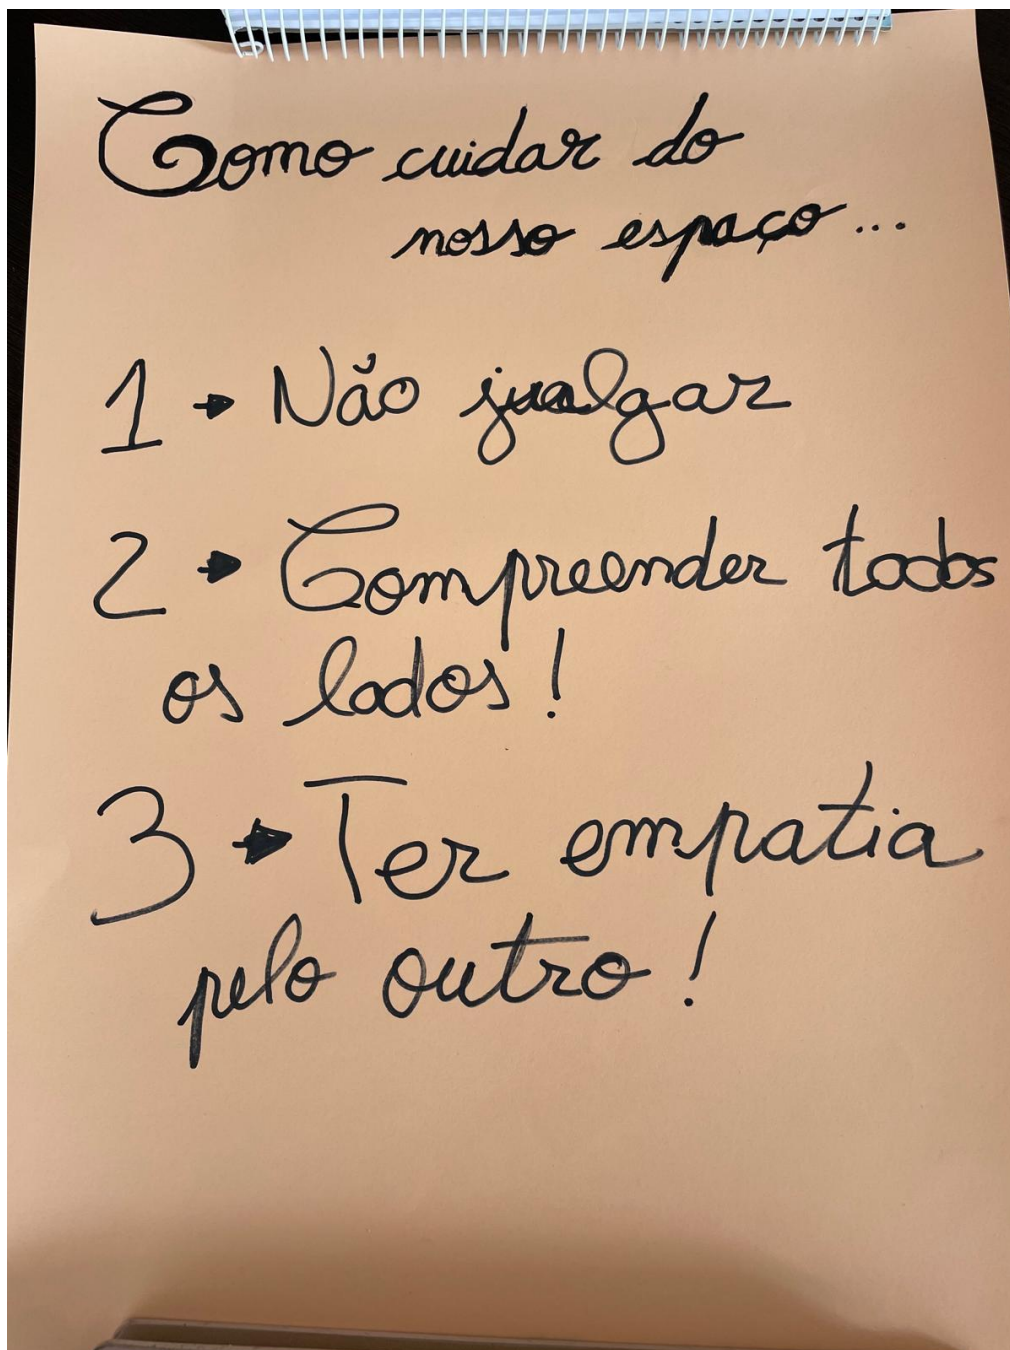 Como cuidar do
nosso espaço...
1 → Não jualgar
2 → Compreender todos
os lados!
3 → Ter empatia
pelo outro!